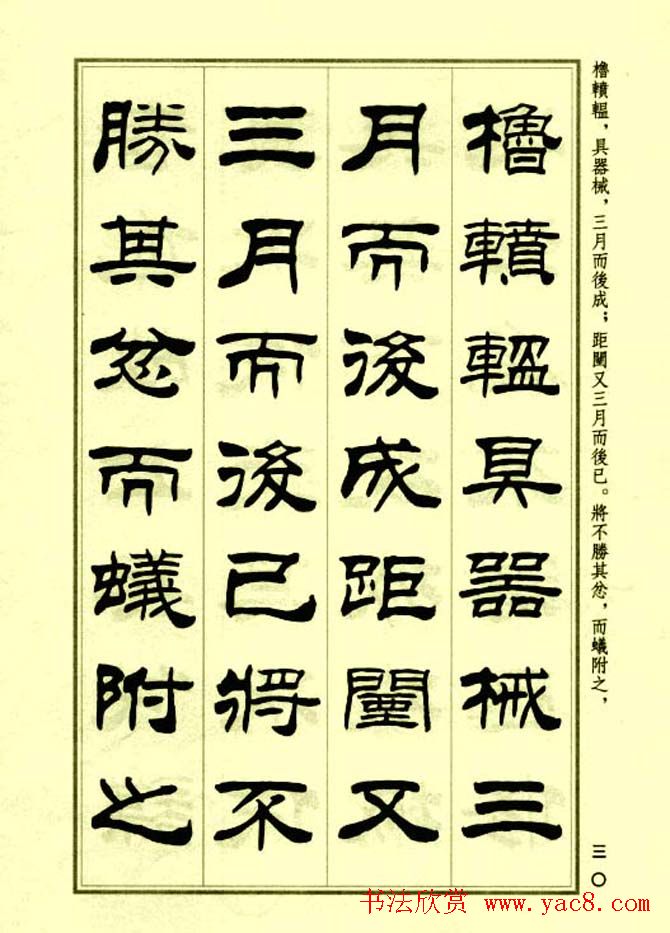 櫓轒輼具器械三
月而後成距闉又
三月而後已將不
勝其忿而蟻附之
櫓轒輼，具器械，三月而後成；距闉又三月而後已。將不勝其忿，而蟻附之，
三〇
书法欣赏 www.yac8.com